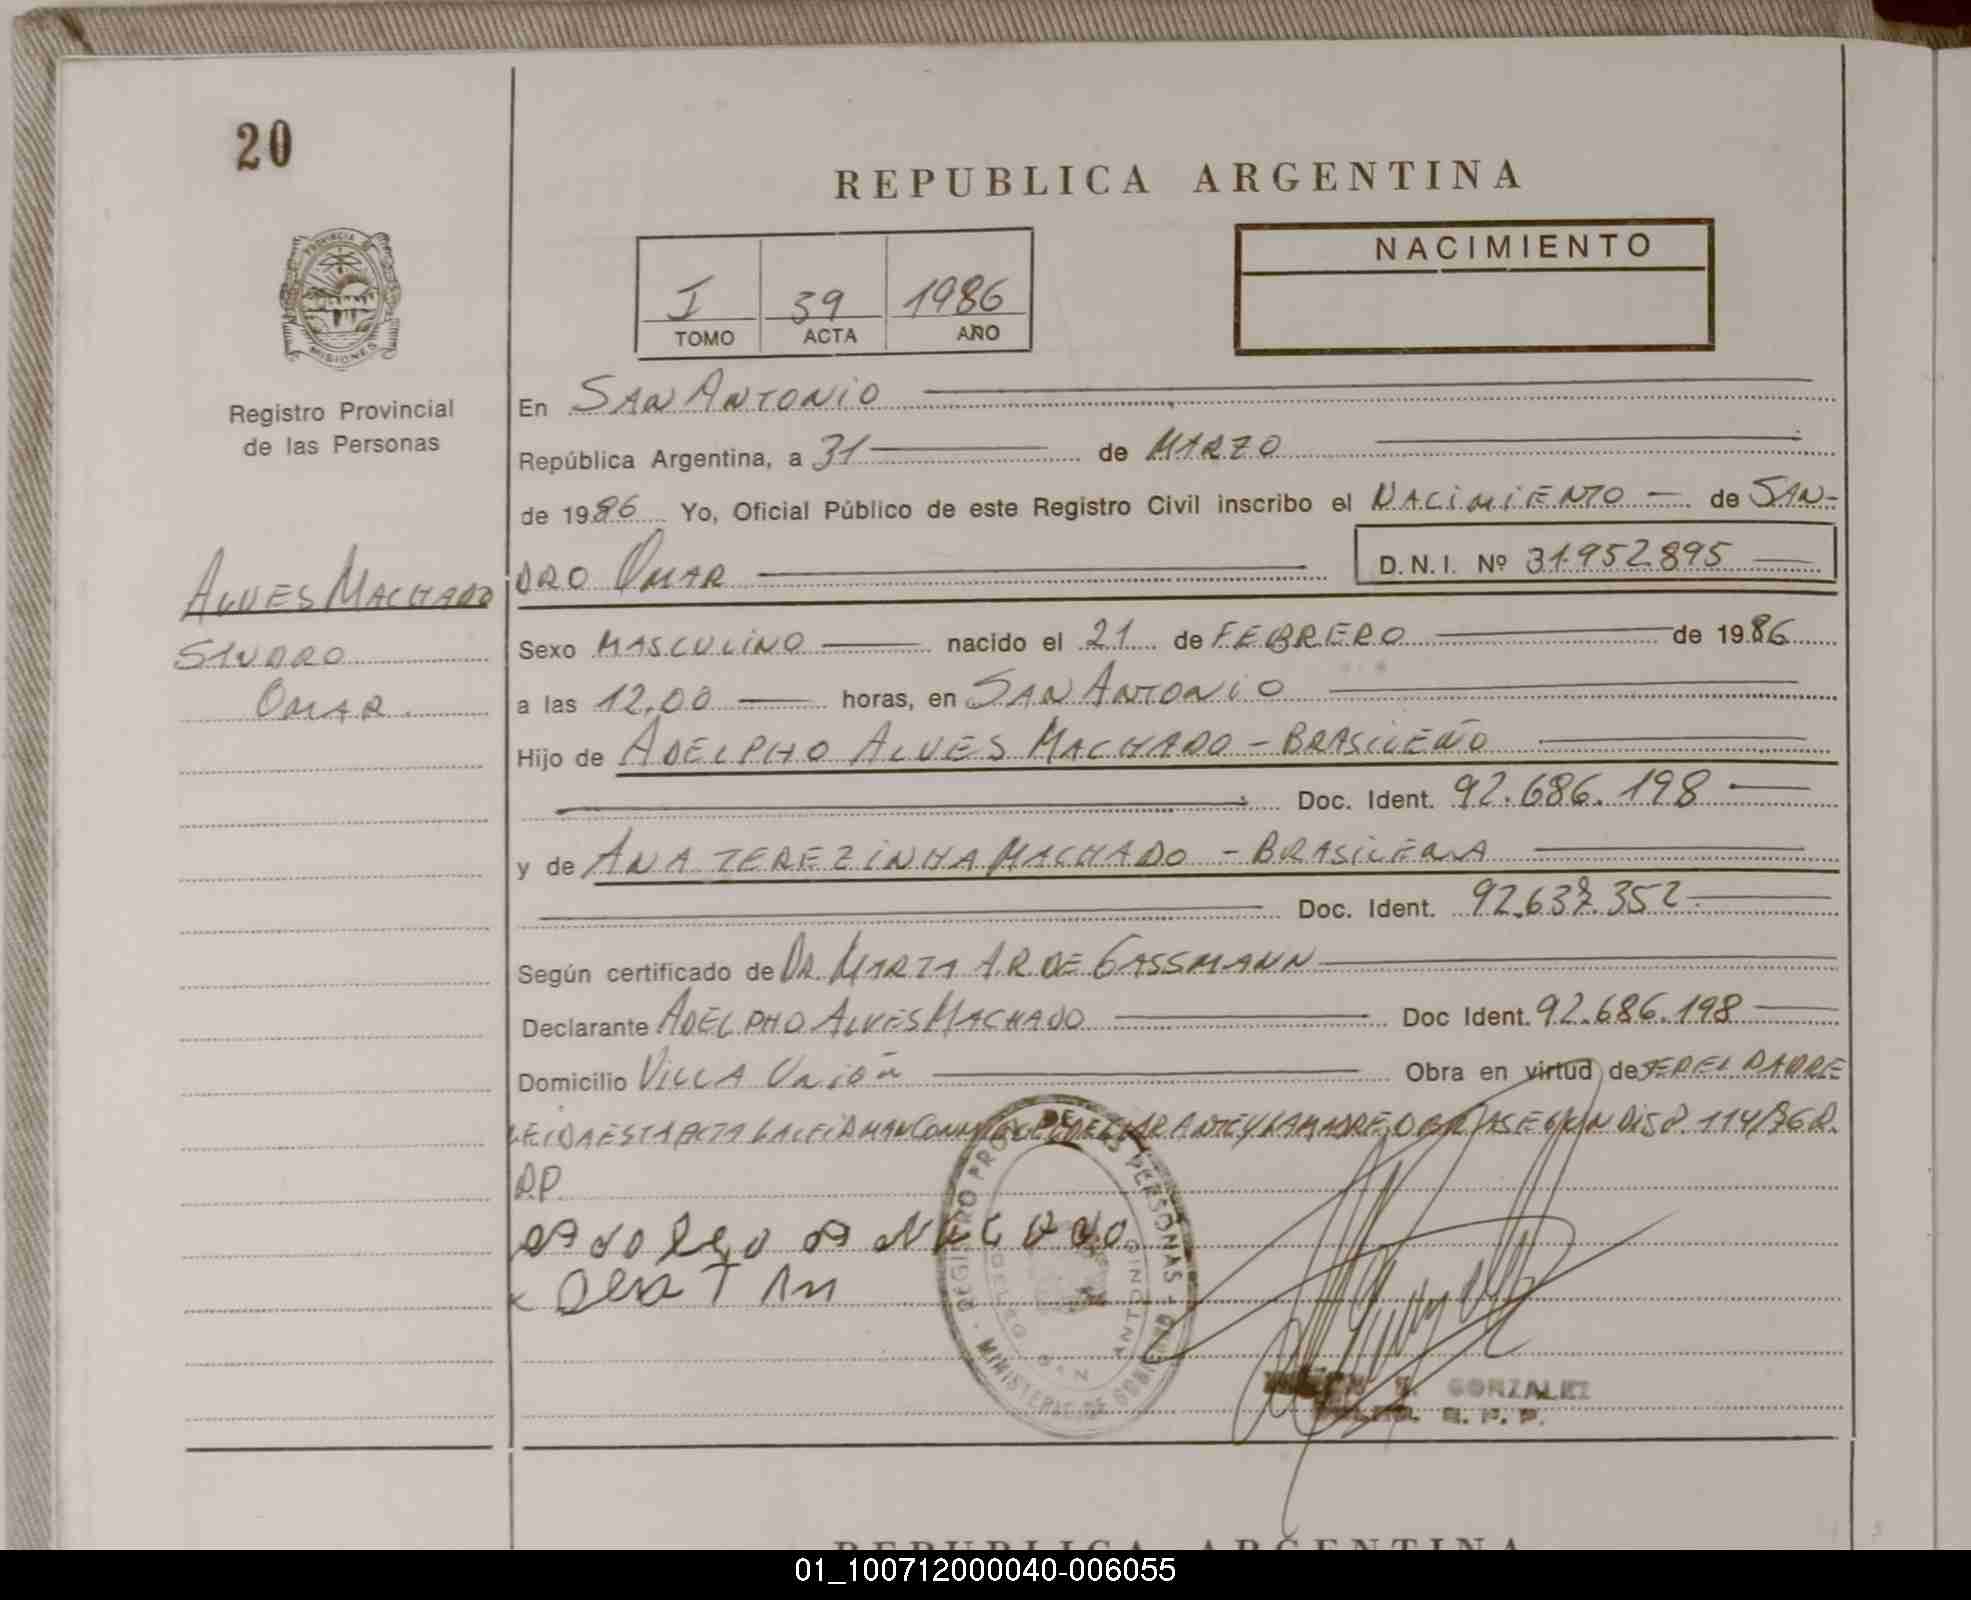 20
REPUBLICA ARGENTINA
PROVINCIA DE
MISIONES
Registro Provincial
de las Personas
NACIMIENTO
I 39 1986
TOMO ACTA AÑO
En SAN ANTONIO
República Argentina, a 31 de MARZO
de 1986 Yo, Oficial Público de este Registro Civil inscribo el NACIMIENTO de SAN-
DRO OMAR D.N.I. Nº 31.952.895
ALVES MACHADO
SANDRO
OMAR.
Sexo MASCULINO nacido el 21 de FEBRERO de 1986
a las 12,00 horas, en SAN ANTONIO
Hijo de ADELPHO ALVES MACHADO - BRASILEÑO
Doc. Ident. 92.686.198
y de ANA TEREZINHA MACHADO - BRASILEÑA
Doc. Ident. 92.637.352
Según certificado de DR. MARTA A.R. DE GASSMANN
Declarante ADELPHO ALVES MACHADO Doc Ident. 92.686.198
Domicilio VILLA UNIÓN Obra en virtud de SER EL PADRE
LEIDA ESTA ACTA LA FIRMAN CONMIGO EL DECLARANTE Y LA MADRE, OBRA SEGUN DISP. 114/86 R.
R.P.
REGISTRO PROV. DE LAS PERSONAS - MINISTERIO DE GOBIERNO
DELEG. SAN ANTONIO
GONZALEZ
R. P. P.
REPUBLICA ARGENTINA
01_100712000040-006055